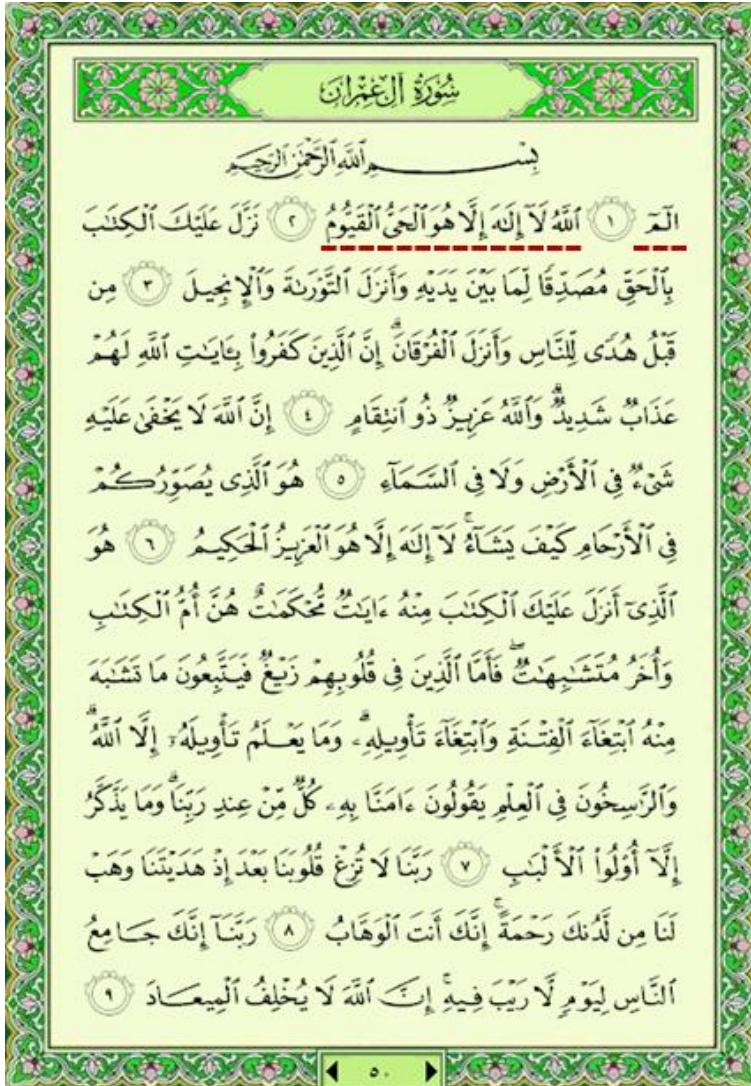 سُورَةُ آلِ عِمْرَانَ
بِسْمِ ٱللَّهِ ٱلرَّحْمَٰنِ ٱلرَّحِيمِ
الٓمٓ ١ ٱللَّهُ لَآ إِلَٰهَ إِلَّا هُوَ ٱلْحَىُّ ٱلْقَيُّومُ ٢ نَزَّلَ عَلَيْكَ ٱلْكِتَٰبَ
بِٱلْحَقِّ مُصَدِّقًا لِّمَا بَيْنَ يَدَيْهِ وَأَنزَلَ ٱلتَّوْرَىٰةَ وَٱلْإِنجِيلَ ٣ مِن
قَبْلُ هُدًى لِّلنَّاسِ وَأَنزَلَ ٱلْفُرْقَانَ ۗ إِنَّ ٱلَّذِينَ كَفَرُوا۟ بِـَٔايَٰتِ ٱللَّهِ لَهُمْ
عَذَابٌ شَدِيدٌ ۗ وَٱللَّهُ عَزِيزٌ ذُو ٱنتِقَامٍ ٤ إِنَّ ٱللَّهَ لَا يَخْفَىٰ عَلَيْهِ
شَىْءٌ فِى ٱلْأَرْضِ وَلَا فِى ٱلسَّمَآءِ ٥ هُوَ ٱلَّذِى يُصَوِّرُكُمْ
فِى ٱلْأَرْحَامِ كَيْفَ يَشَآءُ ۚ لَآ إِلَٰهَ إِلَّا هُوَ ٱلْعَزِيزُ ٱلْحَكِيمُ ٦ هُوَ
ٱلَّذِىٓ أَنزَلَ عَلَيْكَ ٱلْكِتَٰبَ مِنْهُ ءَايَٰتٌ مُّحْكَمَٰتٌ هُنَّ أُمُّ ٱلْكِتَٰبِ
وَأُخَرُ مُتَشَٰبِهَٰتٌ ۖ فَأَمَّا ٱلَّذِينَ فِى قُلُوبِهِمْ زَيْغٌ فَيَتَّبِعُونَ مَا تَشَٰبَهَ
مِنْهُ ٱبْتِغَآءَ ٱلْفِتْنَةِ وَٱبْتِغَآءَ تَأْوِيلِهِۦ ۗ وَمَا يَعْلَمُ تَأْوِيلَهُۥٓ إِلَّا ٱللَّهُ ۗ
وَٱلرَّٰسِخُونَ فِى ٱلْعِلْمِ يَقُولُونَ ءَامَنَّا بِهِۦ كُلٌّ مِّنْ عِندِ رَبِّنَا ۗ وَمَا يَذَّكَّرُ
إِلَّآ أُو۟لُوا۟ ٱلْأَلْبَٰبِ ٧ رَبَّنَا لَا تُزِغْ قُلُوبَنَا بَعْدَ إِذْ هَدَيْتَنَا وَهَبْ
لَنَا مِن لَّدُنكَ رَحْمَةً ۚ إِنَّكَ أَنتَ ٱلْوَهَّابُ ٨ رَبَّنَآ إِنَّكَ جَامِعُ
ٱلنَّاسِ لِيَوْمٍ لَّا رَيْبَ فِيهِ ۚ إِنَّ ٱللَّهَ لَا يُخْلِفُ ٱلْمِيعَادَ ٩
٥٠